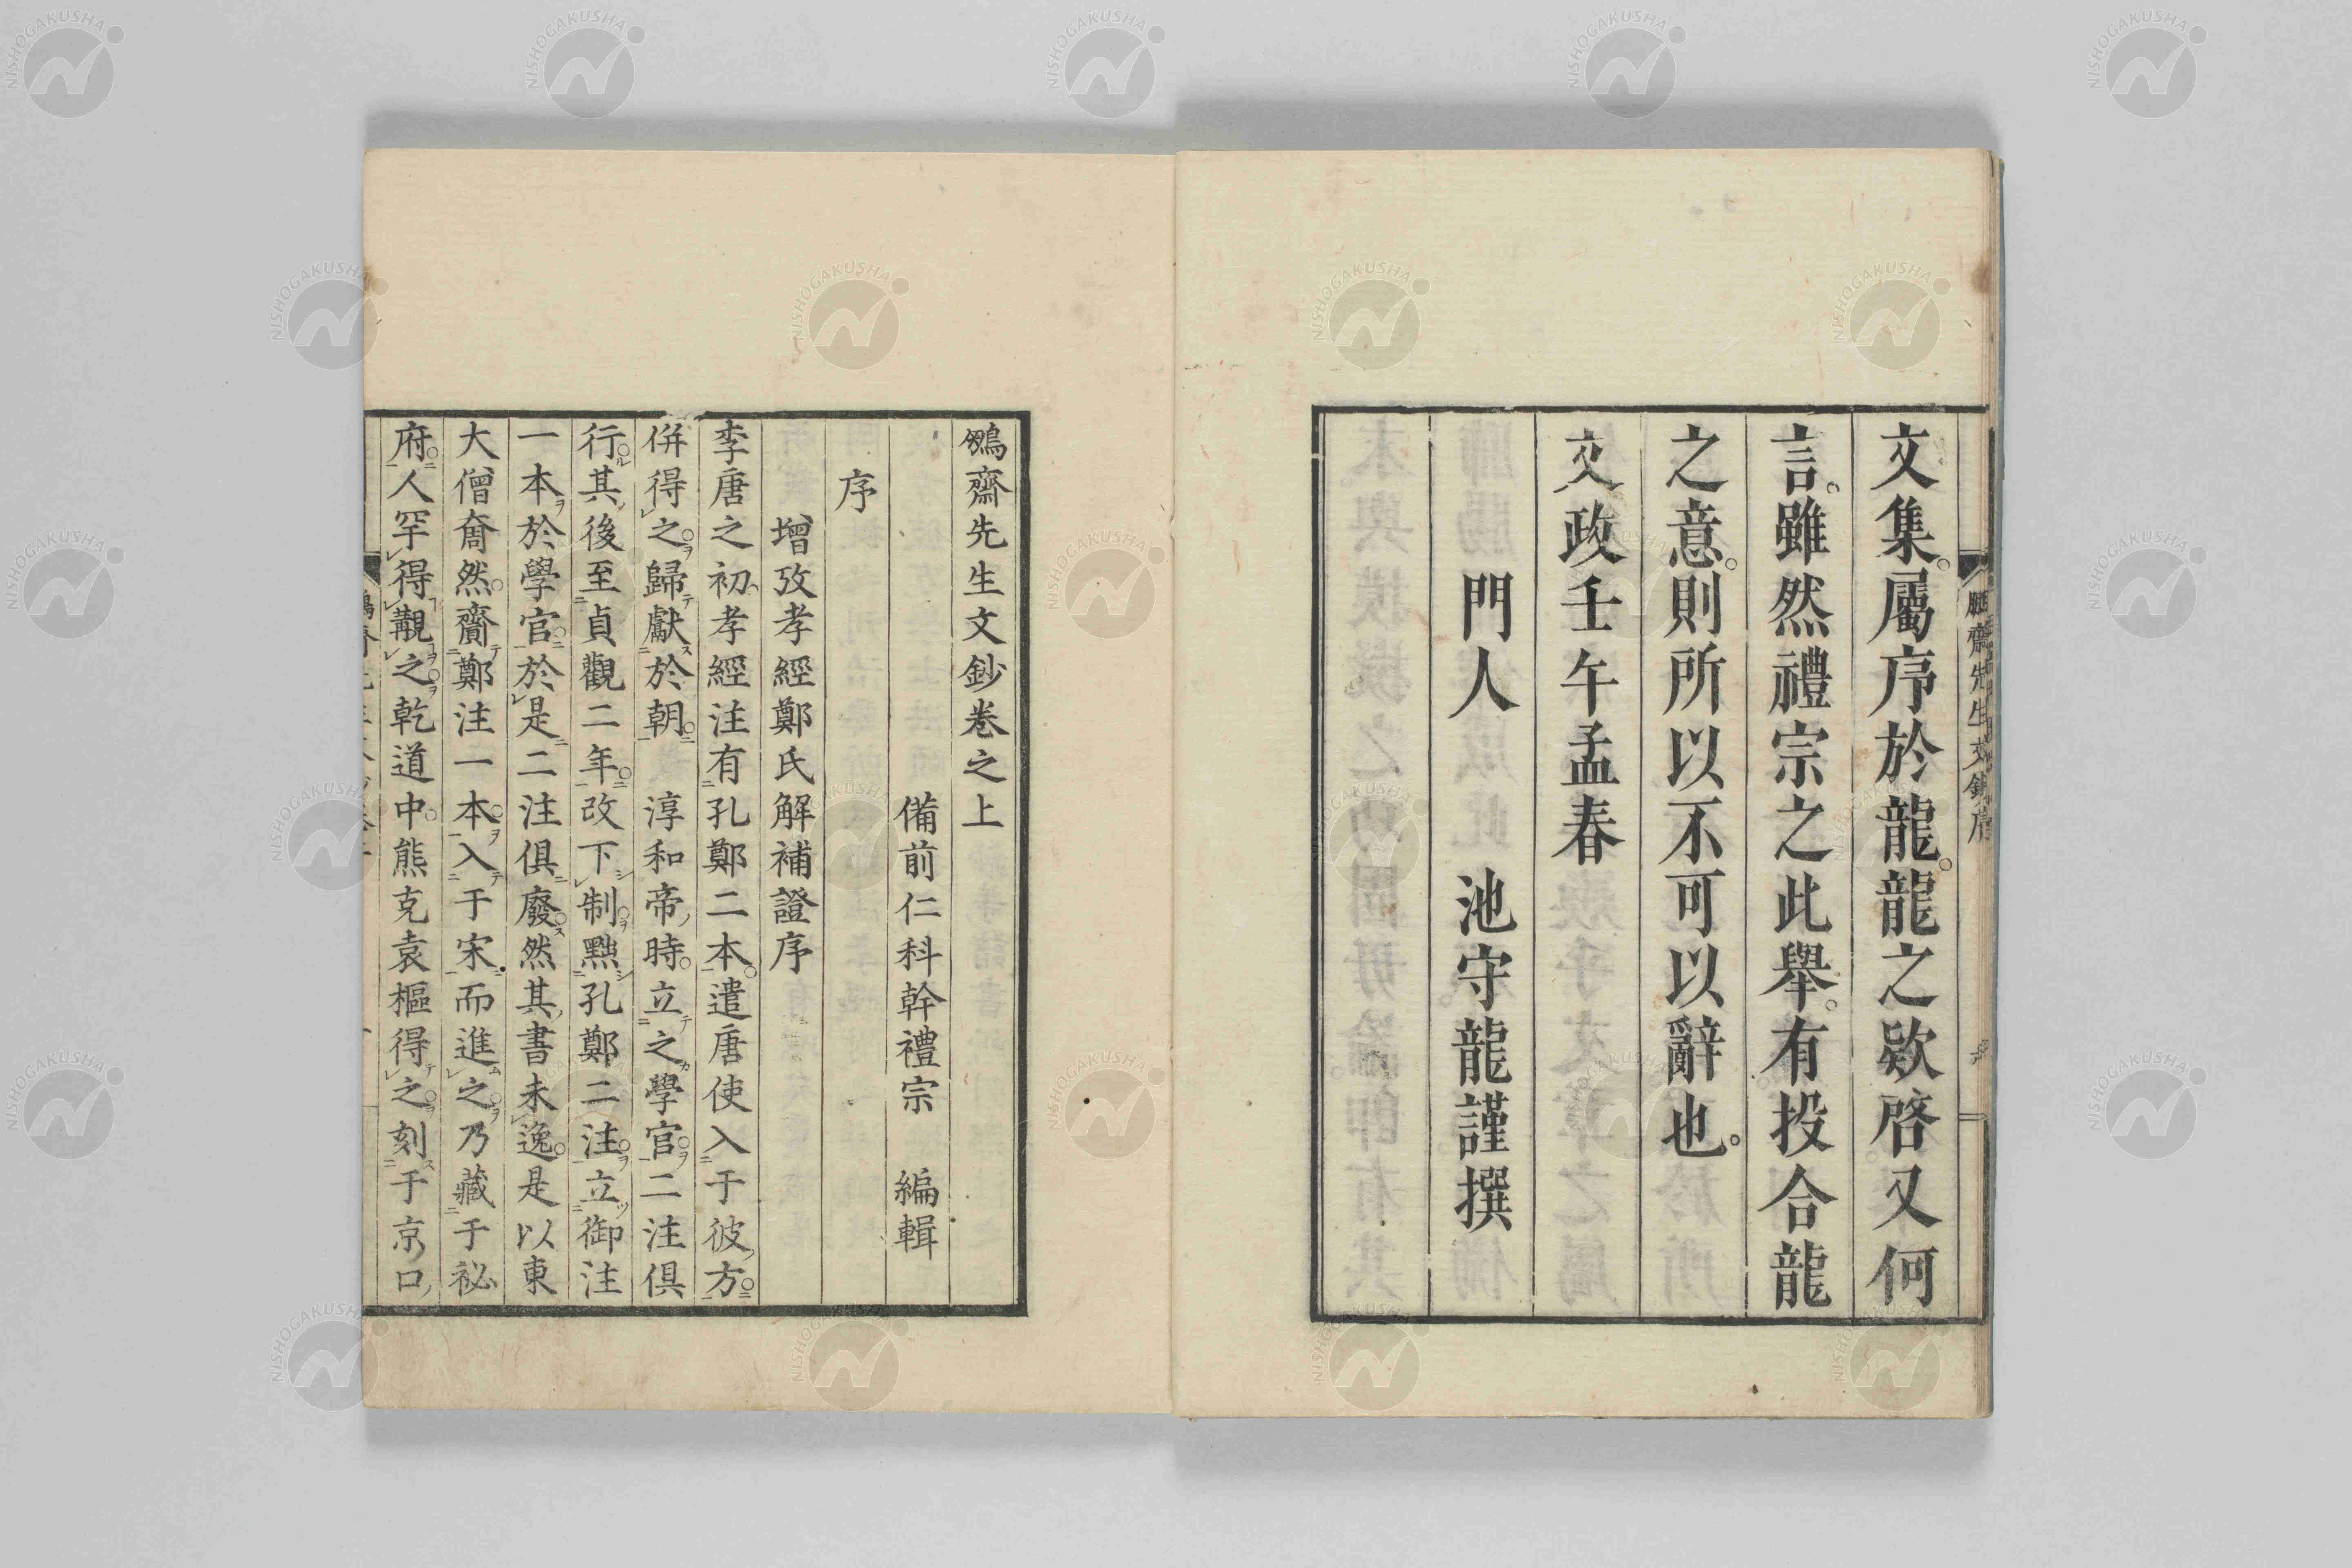 文集。屬序於龍。龍之欵啓又何
言。雖然禮宗之此舉。有投合龍
之意。則所以不可以辭也。
文政壬午孟春
門人 池守龍謹撰
鵬齋先生文鈔卷之上
備前仁科幹禮宗 編輯
序
增攷孝經鄭氏解補證序
李唐之初孝經注有孔鄭二本。遣唐使入于彼方。
併得之。歸獻於朝。淳和帝時。立之學官。二注俱
行。其後至貞觀二年。改下制。黜孔鄭二注。立御注
一本於學官。於是二注俱廢。然其書未逸。是以東
大僧奝然。齎鄭注一本。入于宋。而進之。乃藏于祕
府。人罕得觀之。乾道中。熊克袁樞得之。刻于京口
鵬齋先生文鈔序
NISHOGAKUSHA